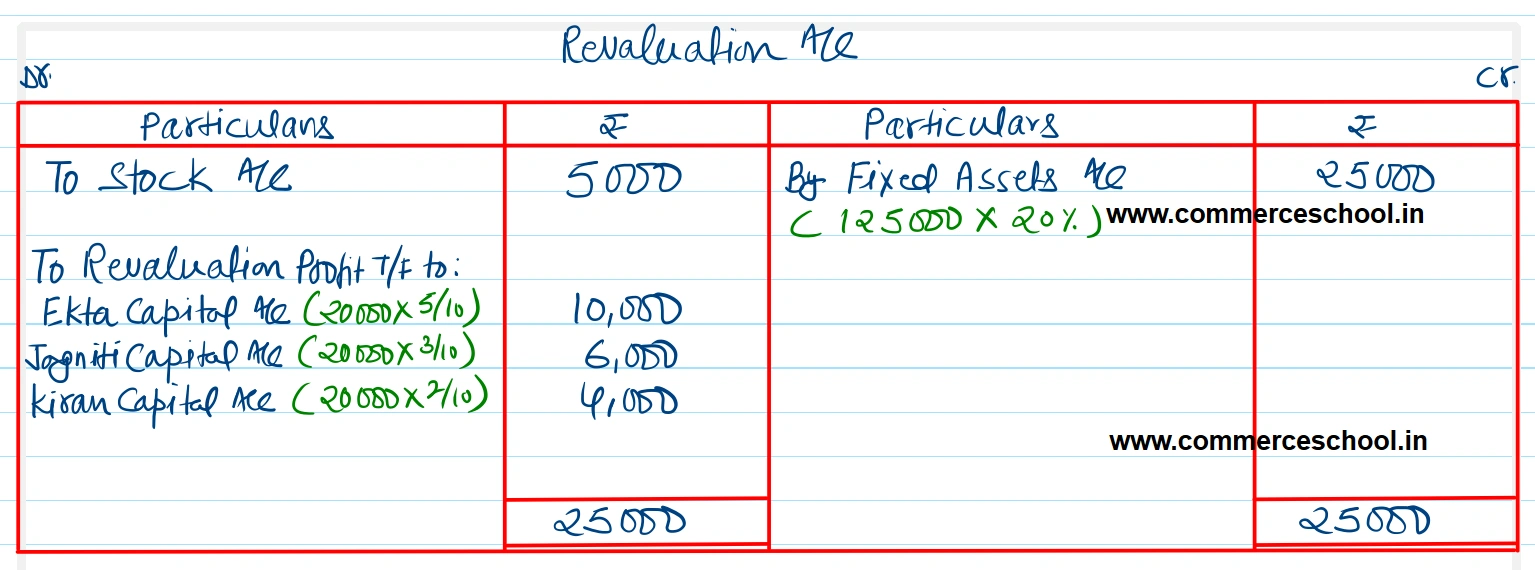 Revaluation A/c
Dr. Cr.
Particulars ₹ Particulars ₹
To Stock A/c 5000 By Fixed Assets A/c 25000
(125000 X 20%) www.commerceschool.in
To Revaluation Profit T/F to:
Ekta Capital A/c (20000 X 5/10) 10,000
Jagniti Capital A/c (20000 X 3/10) 6,000
Kiran Capital A/c (20000 X 2/10) 4,000
www.commerceschool.in
25000 25000